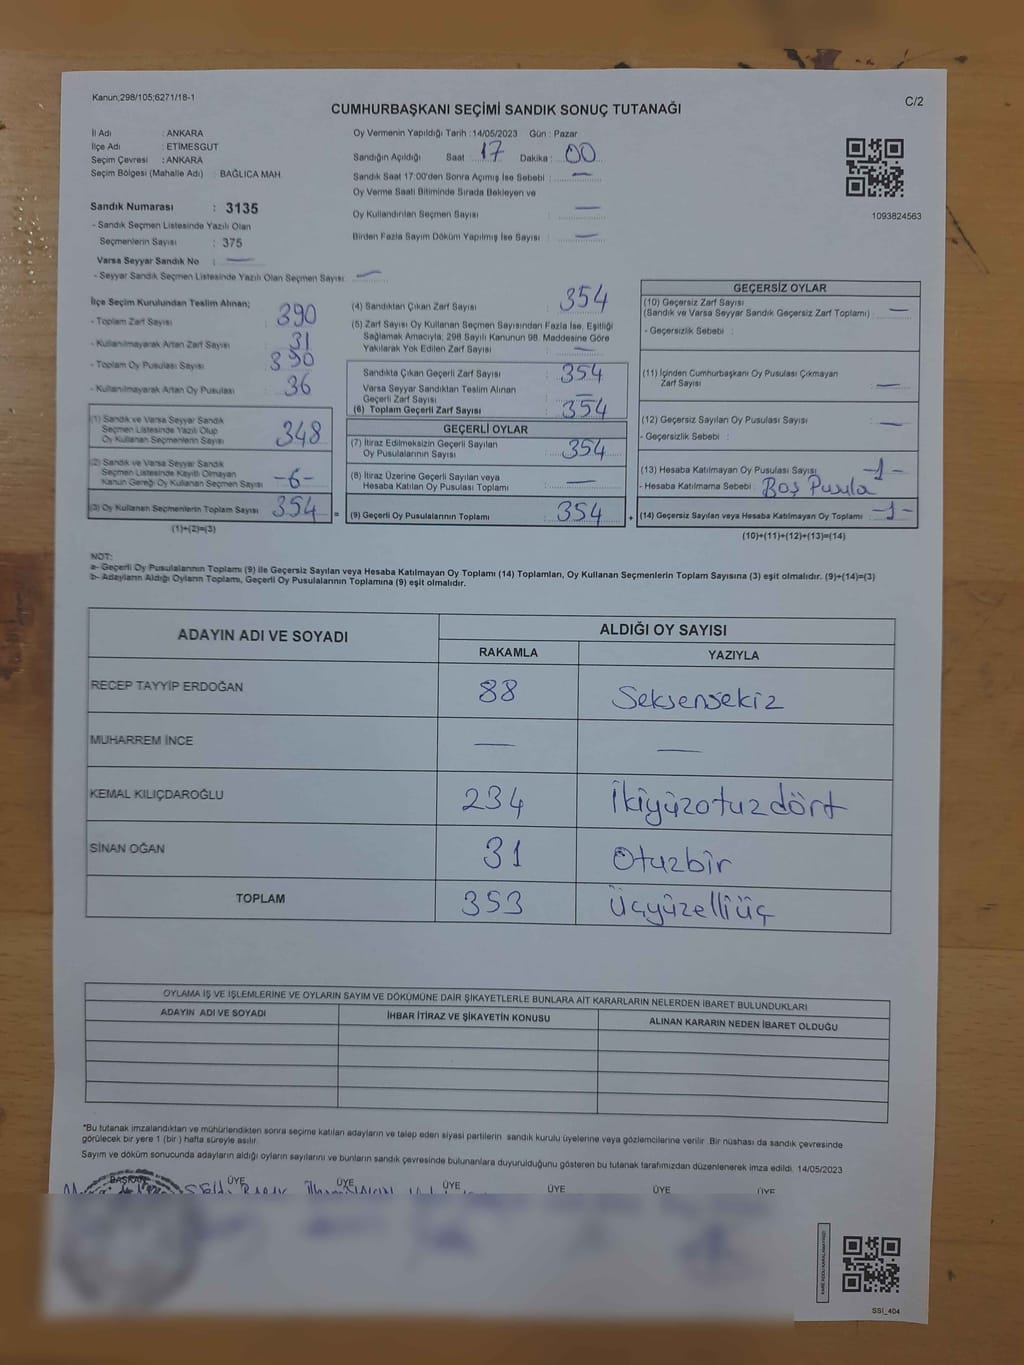 Kanun;298/105;6271/18-1
CUMHURBAŞKANI SEÇİMİ SANDIK SONUÇ TUTANAĞI
C/2
İl Adı : ANKARA
İlçe Adı : ETİMESGUT
Seçim Çevresi : ANKARA
Seçim Bölgesi (Mahalle Adı) : BAĞLICA MAH.
Sandık Numarası : 3135
- Sandık Seçmen Listesinde Yazılı Olan
Seçmenlerin Sayısı : 375
Varsa Seyyar Sandık No : —
- Seyyar Sandık Seçmen Listesinde Yazılı Olan Seçmen Sayısı : —
Oy Vermenin Yapıldığı Tarih :14/05/2023 Gün : Pazar
Sandığın Açıldığı Saat : 17 Dakika : 00
Sandık Saat 17:00'den Sonra Açımış İse Sebebi : —
Oy Verme Saati Bitiminde Sırada Bekleyen ve
Oy Kullandırılan Seçmen Sayısı : —
Birden Fazla Sayım Döküm Yapılmış İse Sayısı : —
1093824563
İlçe Seçim Kurulundan Teslim Alınan;
- Toplam Zarf Sayısı : 390
- Kullanılmayarak Artan Zarf Sayısı : 31
- Toplam Oy Pusulası Sayısı : 390
- Kullanılmayarak Artan Oy Pusulası : 36
(1) Sandık ve Varsa Seyyar Sandık
Seçmen Listesinde Yazılı Olup
Oy Kullanan Seçmenlerin Sayısı : 348
(2) Sandık ve Varsa Seyyar Sandık
Seçmen Listesinde Kayıtlı Olmayan
Kanun Gereği Oy Kullanan Seçmen Sayısı : -6-
(3) Oy Kullanan Seçmenlerin Toplam Sayısı : 354
(1)+(2)=(3)
(4) Sandıktan Çıkan Zarf Sayısı : 354
(5) Zarf Sayısı Oy Kullanan Seçmen Sayısından Fazla İse, Eşitliği
Sağlamak Amacıyla; 298 Sayılı Kanunun 98. Maddesine Göre
Yakılarak Yok Edilen Zarf Sayısı : —
Sandıkta Çıkan Geçerli Zarf Sayısı : 354
Varsa Seyyar Sandıktan Teslim Alınan
Geçerli Zarf Sayısı : —
(6) Toplam Geçerli Zarf Sayısı : 354
GEÇERLİ OYLAR
(7) İtiraz Edilmeksizin Geçerli Sayılan
Oy Pusulalarının Sayısı : 354
(8) İtiraz Üzerine Geçerli Sayılan veya
Hesaba Katılan Oy Pusulası Toplamı : —
= (9) Geçerli Oy Pusulalarının Toplamı : 354 +
GEÇERSİZ OYLAR
(10) Geçersiz Zarf Sayısı
(Sandık ve Varsa Seyyar Sandık Geçersiz Zarf Toplamı) : —
- Geçersizlik Sebebi :
(11) İçinden Cumhurbaşkanı Oy Pusulası Çıkmayan
Zarf Sayısı : —
(12) Geçersiz Sayılan Oy Pusulası Sayısı : —
- Geçersizlik Sebebi :
(13) Hesaba Katılmayan Oy Pusulası Sayısı : -1-
- Hesaba Katılmama Sebebi : Boş Pusula
(14) Geçersiz Sayılan veya Hesaba Katılmayan Oy Toplamı : -1-
(10)+(11)+(12)+(13)=(14)
NOT:
a- Geçerli Oy Pusulalarının Toplamı (9) ile Geçersiz Sayılan veya Hesaba Katılmayan Oy Toplamı (14) Toplamları, Oy Kullanan Seçmenlerin Toplam Sayısına (3) eşit olmalıdır. (9)+(14)=(3)
b- Adayların Aldığı Oyların Toplamı, Geçerli Oy Pusulalarının Toplamına (9) eşit olmalıdır.
ADAYIN ADI VE SOYADI
ALDIĞI OY SAYISI
RAKAMLA YAZIYLA
RECEP TAYYİP ERDOĞAN 88 Seksensekiz
MUHARREM İNCE — —
KEMAL KILIÇDAROĞLU 234 İkiyüzotuzdört
SİNAN OĞAN 31 Otuzbir
TOPLAM 353 Üçyüzelliüç
OYLAMA İŞ VE İŞLEMLERİNE VE OYLARIN SAYIM VE DÖKÜMÜNE DAİR ŞİKAYETLERLE BUNLARA AİT KARARLARIN NELERDEN İBARET BULUNDUKLARI
ADAYIN ADI VE SOYADI İHBAR İTİRAZ VE ŞİKAYETİN KONUSU ALINAN KARARIN NEDEN İBARET OLDUĞU
*Bu tutanak imzalandıktan ve mühürlendikten sonra seçime katılan adayların ve talep eden siyasi partilerin sandık kurulu üyelerine veya gözlemcilerine verilir. Bir nüshası da sandık çevresinde
görülecek bir yere 1 (bir ) hafta süreyle asılır.
Sayım ve döküm sonucunda adayların aldığı oyların sayılarını ve bunların sandık çevresinde bulunanlara duyurulduğunu gösteren bu tutanak tarafımızdan düzenlenerek imza edildi. 14/05/2023
BAŞKAN ÜYE ÜYE ÜYE ÜYE ÜYE ÜYE
SSI_404